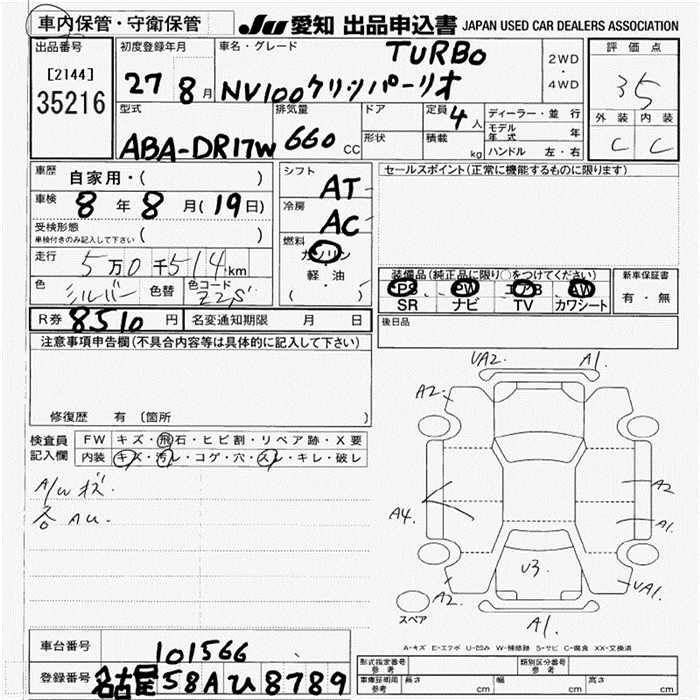 車内保管・守衛保管
JU 愛知 出品申込書 JAPAN USED CAR DEALERS ASSOCIATION
出品番号
[2144]
35216
初度登録年月
27 8月
車名・グレード
TURBO
NV100クリッパーリオ
2WD
・
4WD
評価点
35
外装 内装
C C
型式
ABA-DR17W
排気量
660 CC
ドア
形状
定員 4人
積載 kg
ディーラー・並行
モデル年式 年
ハンドル 左・右
車歴
自家用・( )
車検 8年8月(19日)
受検形態
車検付きのみ記入して下さい ( )
走行 5万0千514km
色 シルバー 色替 色コード Z2S
R券 8510円 名変通知期限 月 日
シフト AT
冷房 AC
燃料
ガソリン
軽・油
( )
セールスポイント(正常に機能するものに限ります)
装備品(純正品に限り○をつけてください)
PS PW エアB AW
SR ナビ TV カワシート
新車保証書
有・無
後日品
注意事項申告欄(不具合内容等は具体的に記入して下さい)
修復歴 有 〔箇所 〕
検査員記入欄
FW キズ・飛石・ヒビ割・リペア跡・X要
内装 キズ・汚レ・コゲ・穴・スレ・キレ・破レ
A/W キズ.
各 AU.
UA2. A1.
A2.
A4.
A2
A1.
U3.
A2.
UA1.
A1.
スペア
A-キズ E-エクボ U-凹み W-補修跡 S-サビ C-腐食 XX-交換済
車台番号 101566
登録番号 名古屋 58A ひ 8789
型式指定番号 参考
類別区分番号 参考
車庫証明用 参考 長さ cm 幅 cm 高さ cm